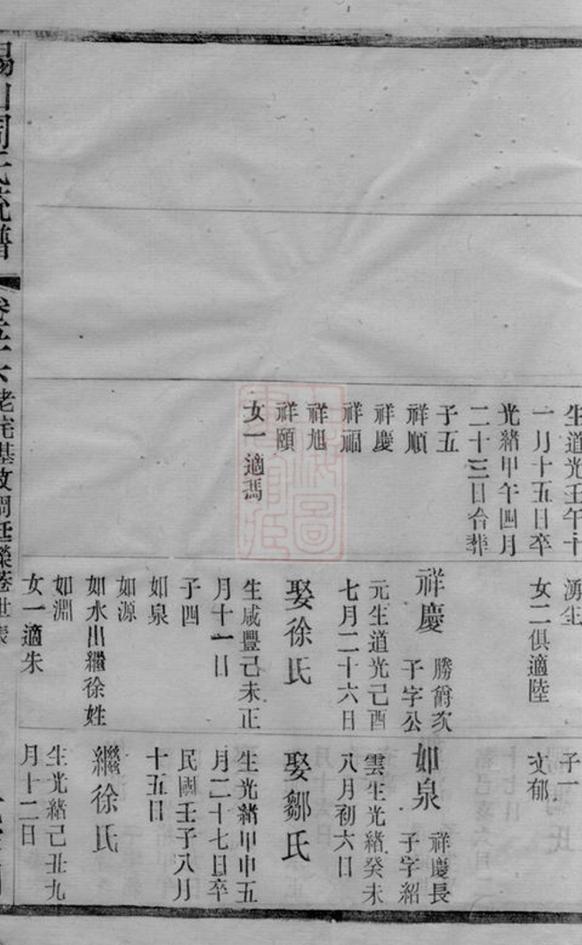 生道光壬午十
一月十五日卒
光緒甲午四月
二十三日合葬
子五
祥順
祥慶
祥福
祥旭
祥頤
女一適馮
湧生
女二俱適陸
祥慶
勝爵次
子字公
元生道光己酉
七月二十六日
娶徐氏
生咸豐己未正
月十一日
子四
如泉
如源
如水出繼徐姓
如淵
女一適朱
子一
文郁
如泉
祥慶長
子字紹
雲生光緒癸未
八月初六日
娶鄒氏
生光緒甲申五
月二十七日卒
民國壬子八月
十五日
繼徐氏
生光緒己丑九
月十二日